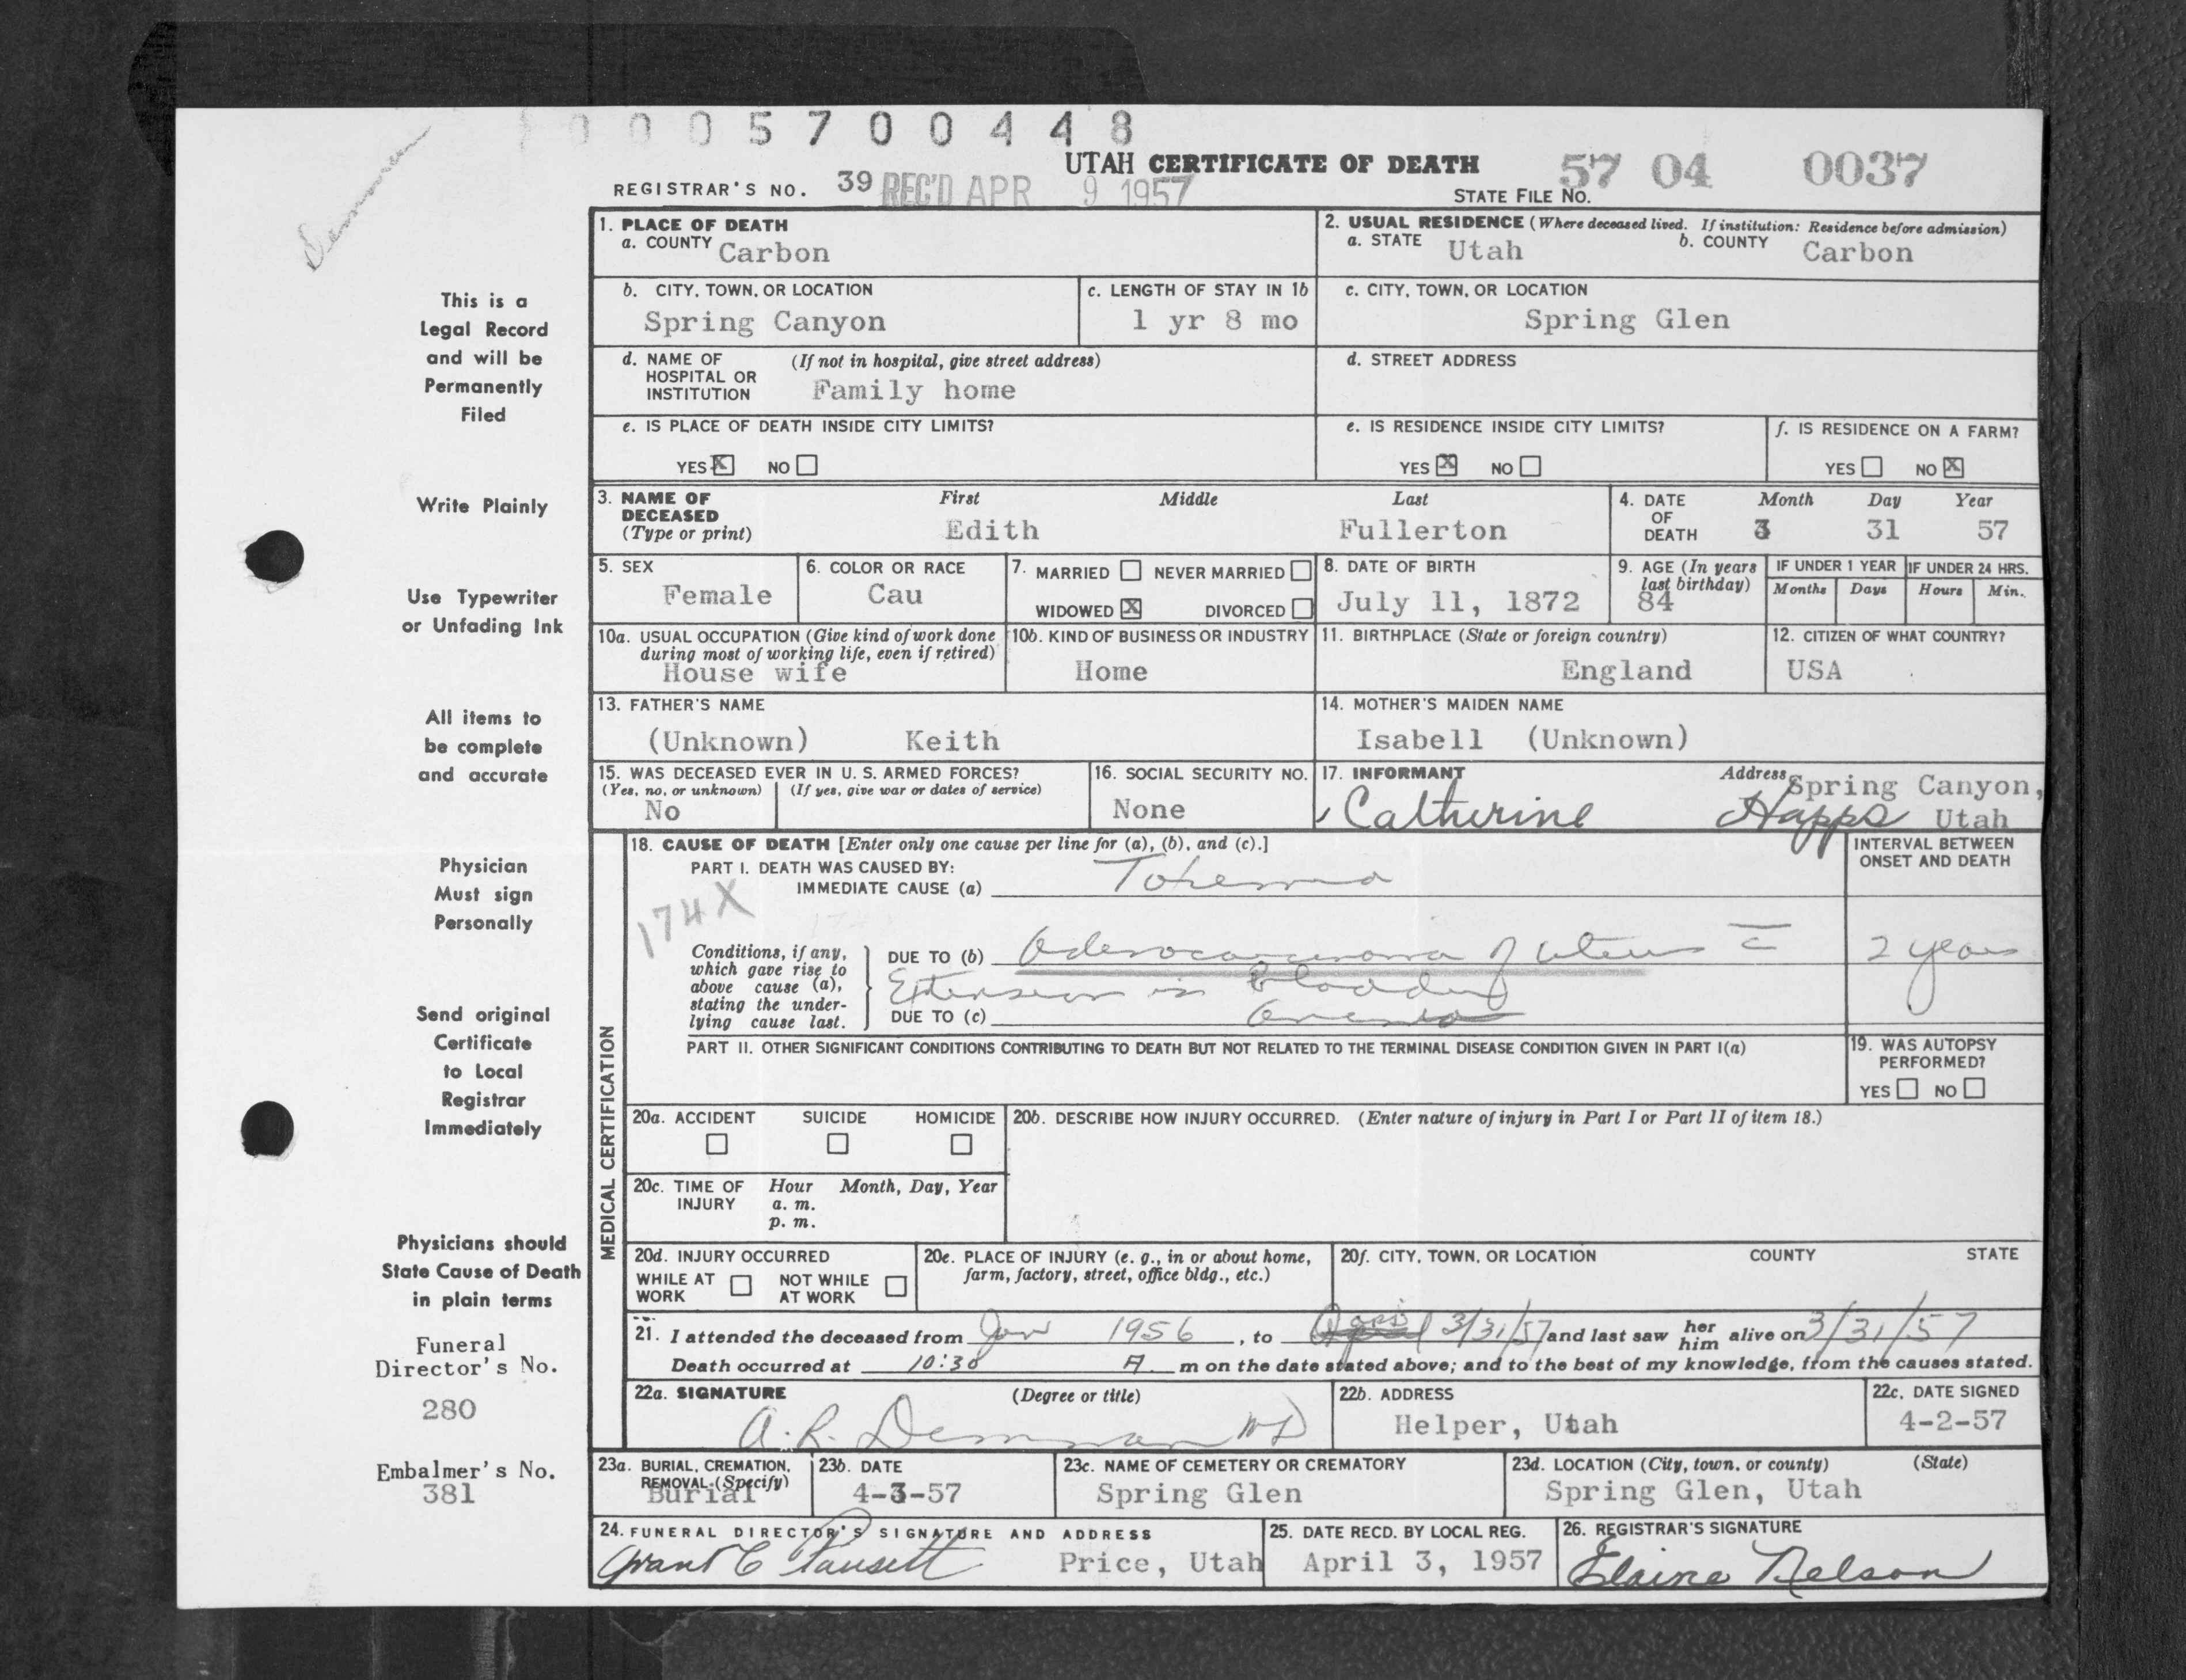 0 0 0 5 7 0 0 4 4 8
Demman
UTAH CERTIFICATE OF DEATH
57 04 0037
REGISTRAR'S NO. 39 REC'D APR 9 1957
STATE FILE NO.
1. PLACE OF DEATH
a. COUNTY Carbon
2. USUAL RESIDENCE (Where deceased lived. If institution: Residence before admission)
a. STATE Utah b. COUNTY Carbon
b. CITY, TOWN, OR LOCATION
Spring Canyon
c. LENGTH OF STAY IN 1b
1 yr 8 mo
c. CITY, TOWN, OR LOCATION
Spring Glen
d. NAME OF HOSPITAL OR INSTITUTION (If not in hospital, give street address)
Family home
d. STREET ADDRESS
e. IS PLACE OF DEATH INSIDE CITY LIMITS?
YES X NO
e. IS RESIDENCE INSIDE CITY LIMITS?
YES X NO
f. IS RESIDENCE ON A FARM?
YES NO X
3. NAME OF DECEASED (Type or print)
First Middle Last
Edith Fullerton
4. DATE OF DEATH
Month Day Year
3 31 57
5. SEX
Female
6. COLOR OR RACE
Cau
7. MARRIED NEVER MARRIED
WIDOWED X DIVORCED
8. DATE OF BIRTH
July 11, 1872
9. AGE (In years last birthday)
84
IF UNDER 1 YEAR IF UNDER 24 HRS.
Months Days Hours Min.
10a. USUAL OCCUPATION (Give kind of work done during most of working life, even if retired)
House wife
10b. KIND OF BUSINESS OR INDUSTRY
Home
11. BIRTHPLACE (State or foreign country)
England
12. CITIZEN OF WHAT COUNTRY?
USA
13. FATHER'S NAME
(Unknown) Keith
14. MOTHER'S MAIDEN NAME
Isabell (Unknown)
15. WAS DECEASED EVER IN U. S. ARMED FORCES?
(Yes, no, or unknown) (If yes, give war or dates of service)
No
16. SOCIAL SECURITY NO.
None
17. INFORMANT Address
Catherine Happs
Spring Canyon,
Utah
MEDICAL CERTIFICATION
18. CAUSE OF DEATH [Enter only one cause per line for (a), (b), and (c).]
PART I. DEATH WAS CAUSED BY:
IMMEDIATE CAUSE (a)
174X
INTERVAL BETWEEN ONSET AND DEATH
Conditions, if any, which gave rise to above cause (a), stating the underlying cause last.
DUE TO (b) Adenocarcinoma of Uterus c̄
2 years
Extension in Bladder
DUE TO (c)
PART II. OTHER SIGNIFICANT CONDITIONS CONTRIBUTING TO DEATH BUT NOT RELATED TO THE TERMINAL DISEASE CONDITION GIVEN IN PART I(a)
19. WAS AUTOPSY PERFORMED?
YES NO
20a. ACCIDENT SUICIDE HOMICIDE
20b. DESCRIBE HOW INJURY OCCURRED. (Enter nature of injury in Part I or Part II of item 18.)
20c. TIME OF INJURY
Hour Month, Day, Year
a. m.
p. m.
20d. INJURY OCCURRED
WHILE AT WORK NOT WHILE AT WORK
20e. PLACE OF INJURY (e. g., in or about home, farm, factory, street, office bldg., etc.)
20f. CITY, TOWN, OR LOCATION COUNTY STATE
21. I attended the deceased from Jan 1956, to 3/31/57 and last saw her him alive on 3/31/57
Death occurred at 10:30 A. m on the date stated above; and to the best of my knowledge, from the causes stated.
22a. SIGNATURE (Degree or title)
A. R. Demman MD
22b. ADDRESS
Helper, Utah
22c. DATE SIGNED
4-2-57
23a. BURIAL, CREMATION, REMOVAL (Specify)
Burial
23b. DATE
4-3-57
23c. NAME OF CEMETERY OR CREMATORY
Spring Glen
23d. LOCATION (City, town, or county) (State)
Spring Glen, Utah
24. FUNERAL DIRECTOR'S SIGNATURE AND ADDRESS
Grant C Fausett Price, Utah
25. DATE RECD. BY LOCAL REG.
April 3, 1957
26. REGISTRAR'S SIGNATURE
Elaine Nelson
This is a
Legal Record
and will be
Permanently
Filed
Write Plainly
Use Typewriter
or Unfading Ink
All items to
be complete
and accurate
Physician
Must sign
Personally
Send original
Certificate
to Local
Registrar
Immediately
Physicians should
State Cause of Death
in plain terms
Funeral
Director's No.
280
Embalmer's No.
381